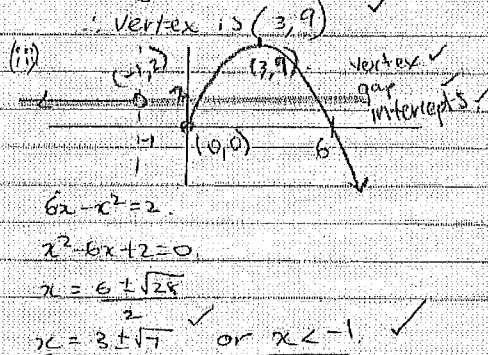 ∴ vertex is (3,9) ✓
(iii) (-1,2) (3,9) vertex ✓
2 gap ✓
intercepts ✓
-1 (0,0) 6
6x - x² = 2.
x² - 6x + 2 = 0.
x = 6 ± √28 / 2
x = 3 ± √7 ✓ or x < -1. ✓